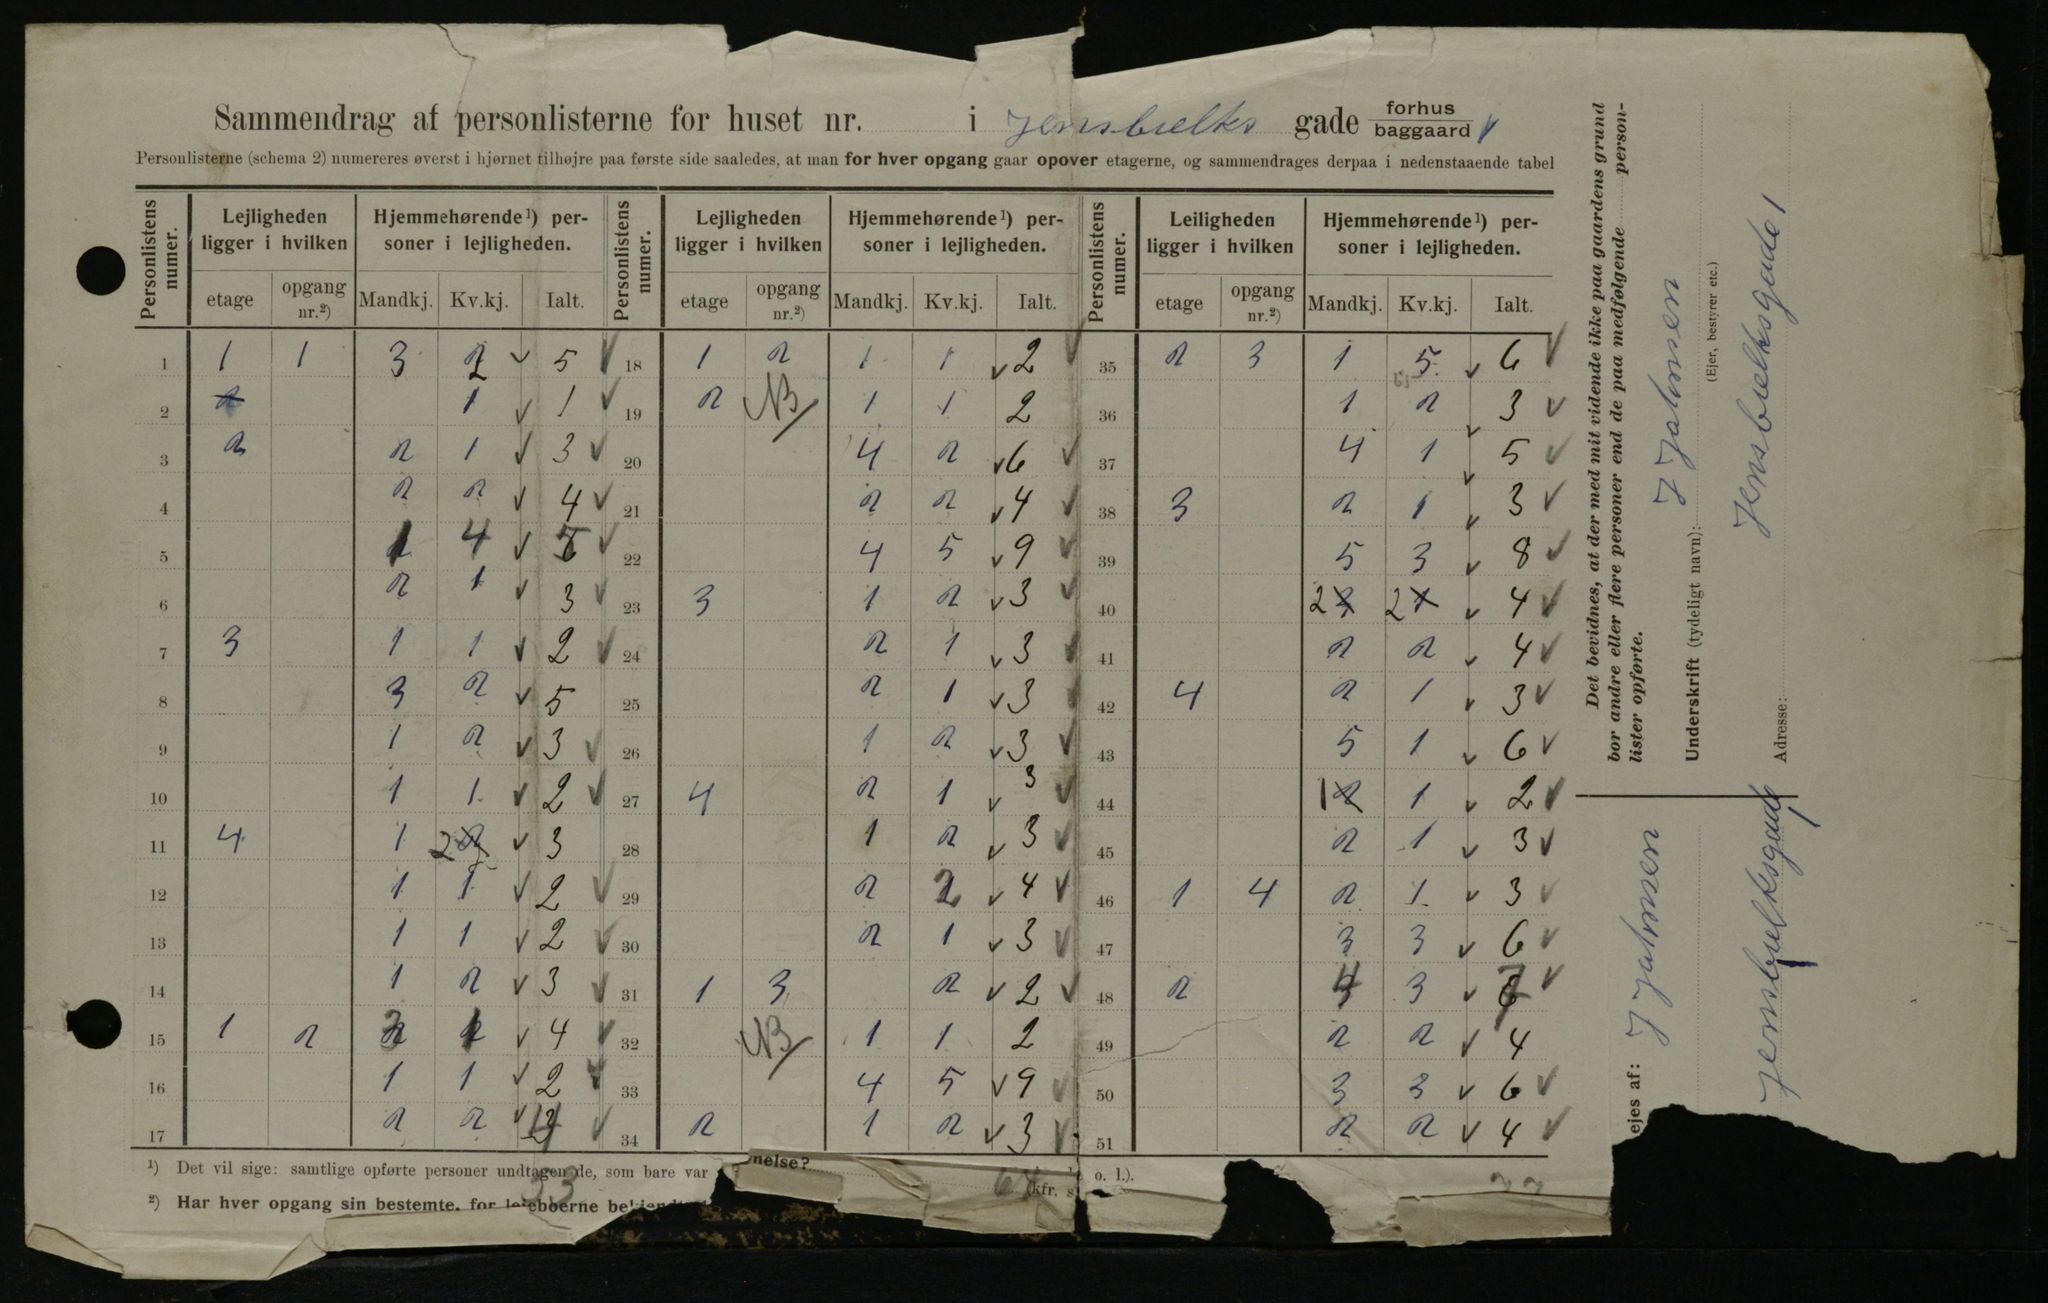 Sammendrag af personlisterne for huset nr. i Jensbielks gade forhus baggaard
Personlisterne (schema 2) numereres øverst i hjørnet tilhøjre paa første side saaledes, at man for hver opgang gaar opover etagerne, og sammendrages derpaa i nedenstaaende tabel
Personlistens numer. Lejligheden ligger i hvilken Hjemmehørende ¹) personer i lejligheden. Personlistens numer. Lejligheden ligger i hvilken Hjemmehørende ¹) personer i lejligheden. Personlistens numer. Leiligheden ligger i hvilken Hjemmehørende ¹) personer i lejligheden.
etage opgang nr.²) Mandkj. Kv.kj. Ialt. etage opgang nr.²) Mandkj. Kv.kj. Ialt. etage opgang nr.²) Mandkj. Kv.kj. Ialt.
1 1 1 3 2 5 18 1 2 1 1 2 35 2 3 1 5 6
2 2 1 1 19 2 NB 1 1 2 36 1 2 3
3 2 2 1 3 20 4 2 6 37 4 1 5
4 2 2 4 21 2 2 4 38 3 2 1 3
5 1 4 5 22 4 5 9 39 5 3 8
6 2 1 3 23 3 1 2 3 40 2 2 4
7 3 1 1 2 24 2 1 3 41 2 2 4
8 3 2 5 25 2 1 3 42 4 2 1 3
9 1 2 3 26 1 2 3 43 5 1 6
10 1 1 2 27 4 2 1 3 44 1 1 2
11 4 1 2 3 28 1 2 3 45 2 1 3
12 1 1 2 29 2 2 4 46 1 4 2 1 3
13 1 1 2 30 2 1 3 47 3 3 6
14 1 2 3 31 1 3 2 2 48 2 4 3 7
15 1 2 3 1 4 32 NB 1 1 2 49 2 2 4
16 1 1 2 33 4 5 9 50 3 3 6
17 2 2 4 34 2 1 2 3 51 2 2 4
¹) Det vil sige: samtlige opførte personer undtagen de, som bare var
nelse?
o. l.).
33
(kfr. s
²) Har hver opgang sin bestemte, for lejeboerne
Det bevidnes, at der med mit vidende ikke paa gaardens grund
bor andre eller flere personer end de paa medfølgende person-
lister opførte.
Underskrift (tydeligt navn): J Jahnsen
(Ejer, bestyrer etc.)
Adresse: Jensbielksgade 1
ejes af: J Jahnsen
Jensbielksgade 1